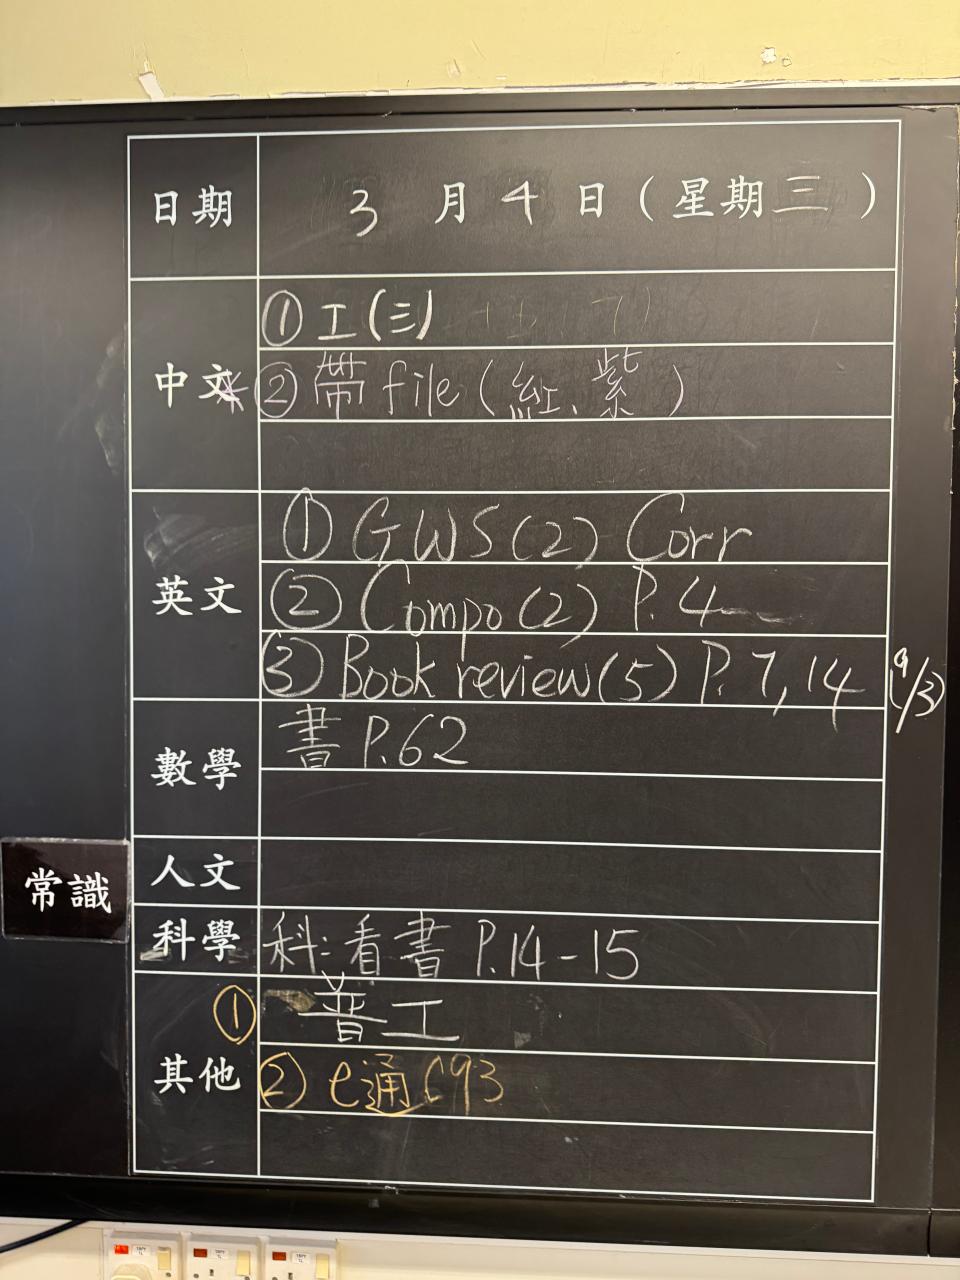 日期 3 月 4 日 ( 星期 三 )
中文 ① 工(三)
* ② 帶 file (紅、紫)
英文 ① GWS(2) Corr
② Compo(2) P.4
③ Book review(5) P.7,14 (9/3)
數學 書 P.62
人文
常識
科學 科:看書 P.14-15
其他 ① 普工
② e通 C93